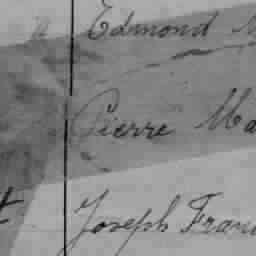 Edmond
Pierre Ma
Joseph Fran